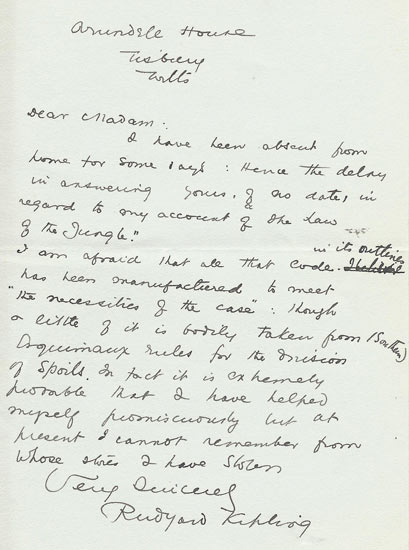 Arundell House
Tisbury
Wilts
Dear Madam:
I have been absent from
home for some days: Hence the delay
in answering yours, of no date, in
regard to my account of "the Law
of the Jungle."
I am afraid that all that code in its outlines
has been manufactured to meet
"the necessities of the case": though
a little of it is bodily taken from (Southern)
Esquimaux rules for the division
of spoils. In fact it is extremely
probable that I have helped
myself promiscuously but at
present I cannot remember from
whose stories I have stolen
Very sincerely
Rudyard Kipling